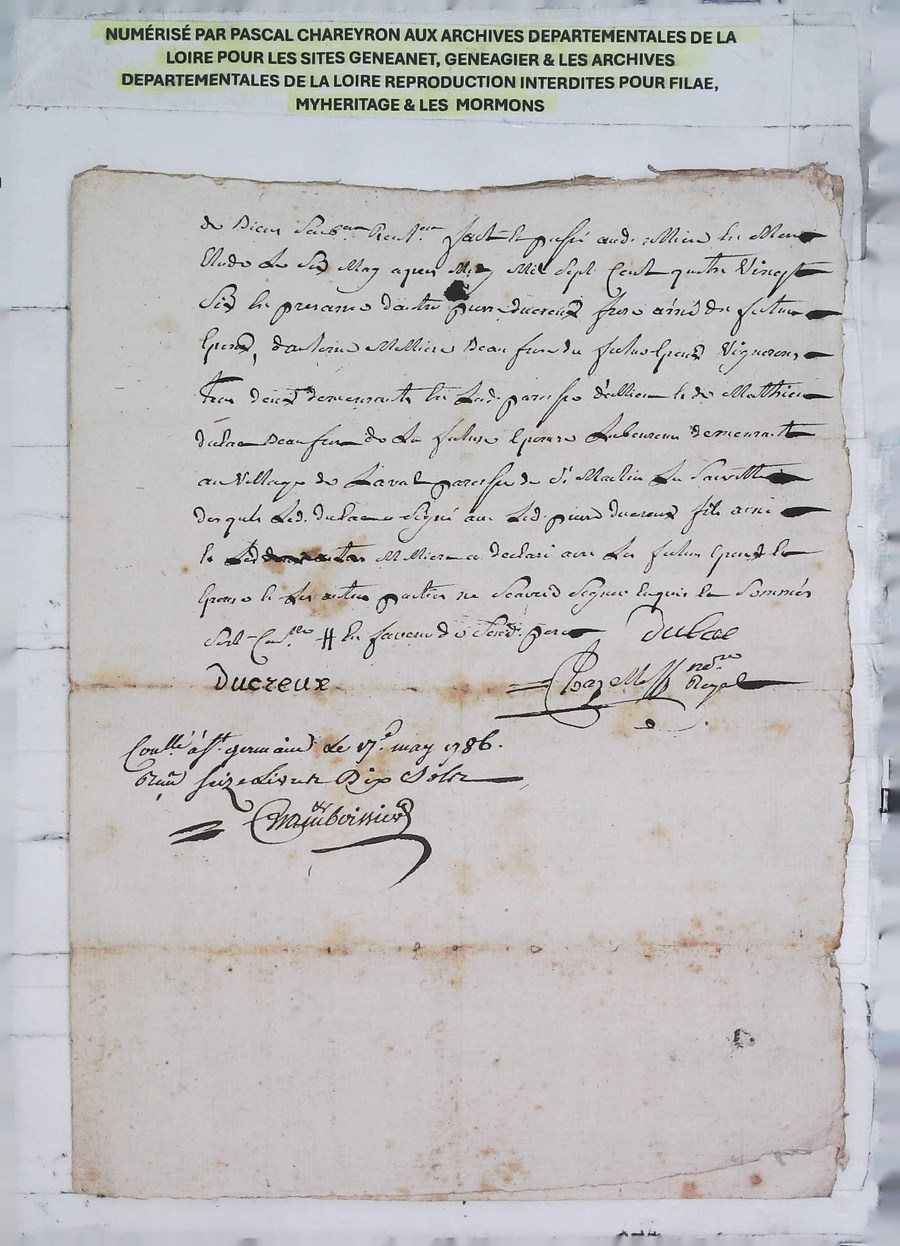 NUMÉRISÉ PAR PASCAL CHAREYRON AUX ARCHIVES DEPARTEMENTALES DE LA
LOIRE POUR LES SITES GENEANET, GENEAGIER & LES ARCHIVES
DEPARTEMENTALES DE LA LOIRE REPRODUCTION INTERDITES POUR FILAE,
MYHERITAGE & LES MORMONS
de Biens fait et passé aud.
le Six May apres Midy Mil Sept Cent quatre Vingt
Six En presance pierre ducreux frere ainé du futur
Epoux, d'antoine Beau frere du futur Epoux Vignerons
tous deux demeurants En Lad. paroisse d'allieu & de Matthieu
dulac Beau frere de La future Epouse Laboureur demeurant
au Village de Laval paroisse de St. Martin La Sauvetté
desquels Led. dulac a Signé avec Led. pierre ducreux fils ainé
a declaré avec Les futurs Epoux &
Epouse & Les autres parties ne Scavoir Signer Enquis & Sommés
En faveur de Sond. pere Dulac
Ducreux Royal
Conllé à St. germain Le 17e. may 1786.
Seize Livres Dix Sols